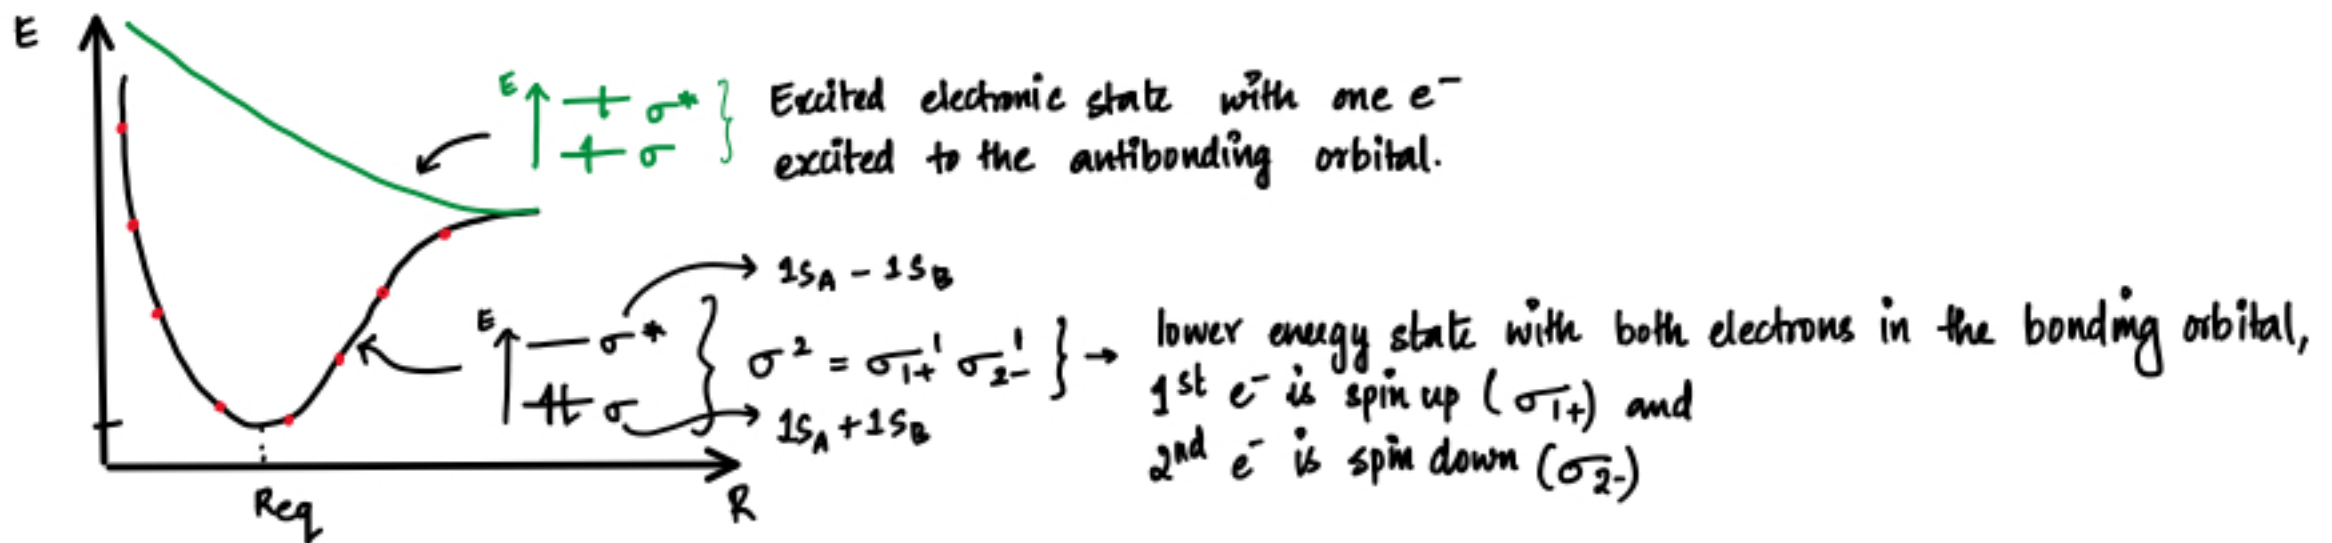 E
E ↑ σ* } Excited electronic state with one e⁻
σ excited to the antibonding orbital.
1s_A - 1s_B
E ↑ σ* } σ² = σ₁₊¹ σ₂₋¹ } → lower energy state with both electrons in the bonding orbital,
σ 1st e⁻ is spin up (σ₁₊) and
1s_A + 1s_B
2nd e⁻ is spin down (σ₂₋)
Req
R